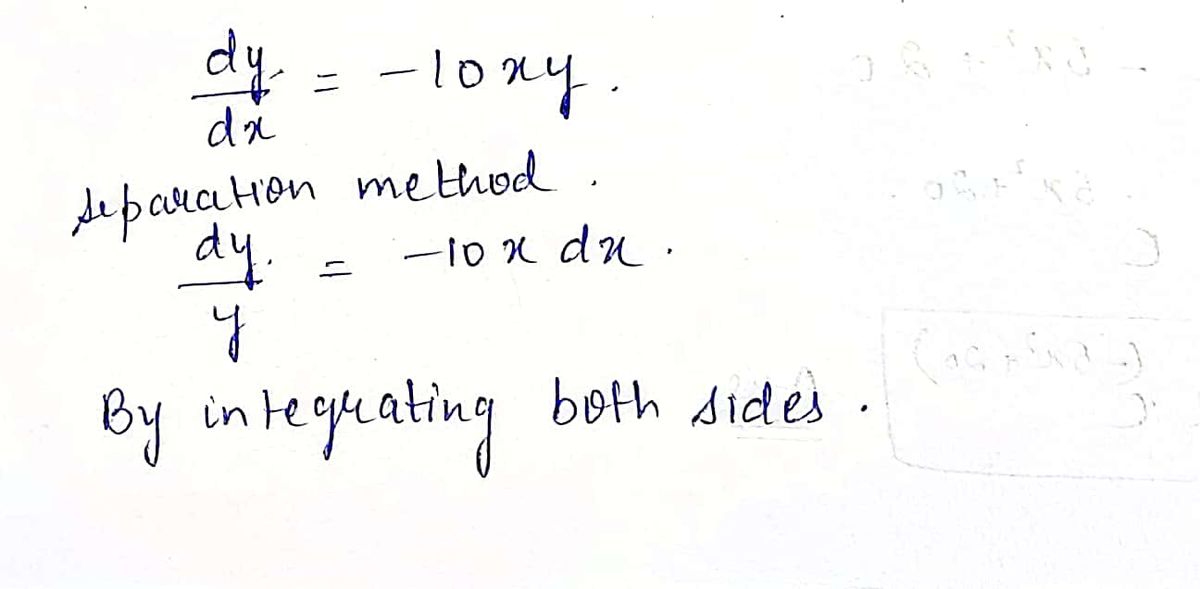 dy/dx = -10xy.
separation method.
dy/y = -10x dx.
By integrating both sides.